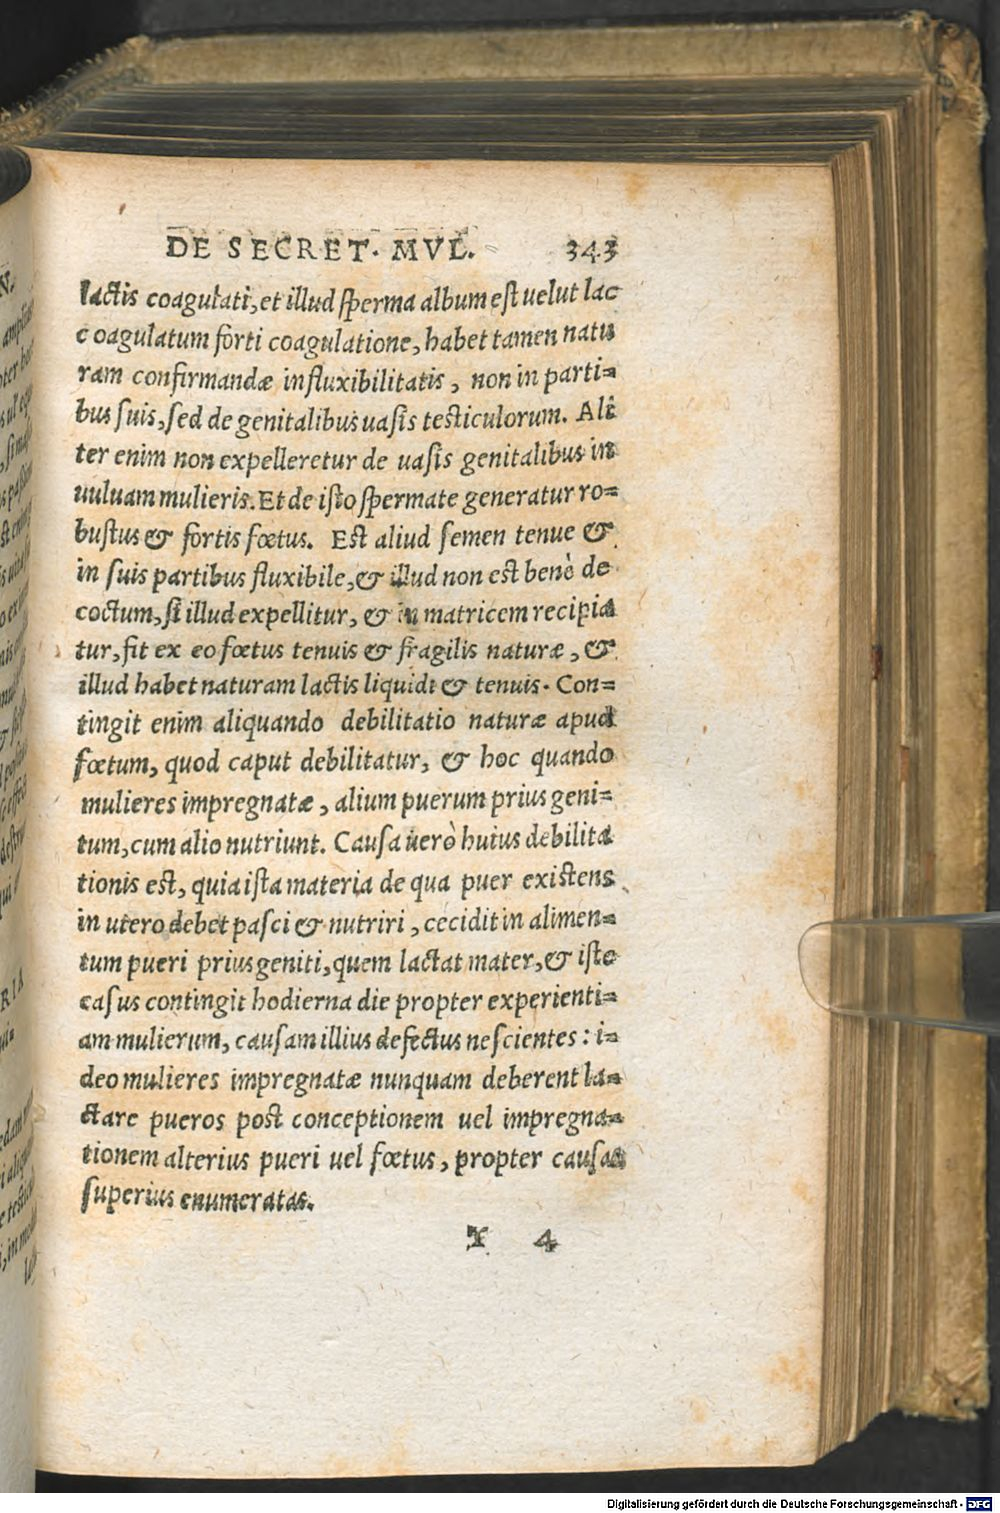 DE SECRET. MVL. 343
lactis coagulati, et illud sperma album est uelut lac
coagulatum forti coagulatione, habet tamen natu
ram confirmandæ influxibilitatis, non in parti=
bus suis, sed de genitalibus uasis testiculorum. Ali
ter enim non expelleretur de uasis genitalibus in
uuluam mulieris. Et de isto spermate generatur ro=
bustus & fortis fœtus. Est aliud semen tenue &
in suis partibus fluxibile, & illud non est benè de
coctum, si illud expellitur, & in matricem recipia
tur, fit ex eo fœtus tenuis & fragilis naturæ, &
illud habet naturam lactis liquidi & tenuis. Con=
tingit enim aliquando debilitatio naturæ apud
fœtum, quod caput debilitatur, & hoc quando
mulieres impregnatæ, alium puerum prius geni=
tum, cum alio nutriunt. Causa uerò huius debilita
tionis est, quia ista materia de qua puer existens
in utero debet pasci & nutriri, cecidit in alimen=
tum pueri prius geniti, quem lactat mater, & iste
casus contingit hodierna die propter experienti=
am mulierum, causam illius defectus nescientes: i=
deo mulieres impregnatæ nunquam deberent la=
ctare pueros post conceptionem uel impregna=
tionem alterius pueri uel fœtus, propter causas
superius enumeratas.
Y 4
Digitalisierung gefördert durch die Deutsche Forschungsgemeinschaft - DFG